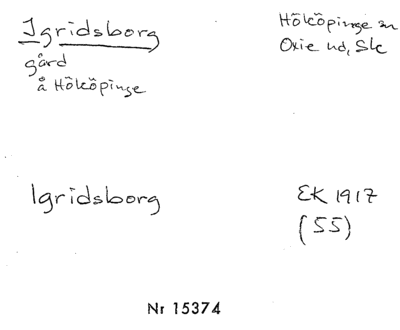 Igridsborg
gård
å Hököpinge
Hököpinge sn
Oxie hd, Sk
Igridsborg
EK 1917
(55)
Nr 15374